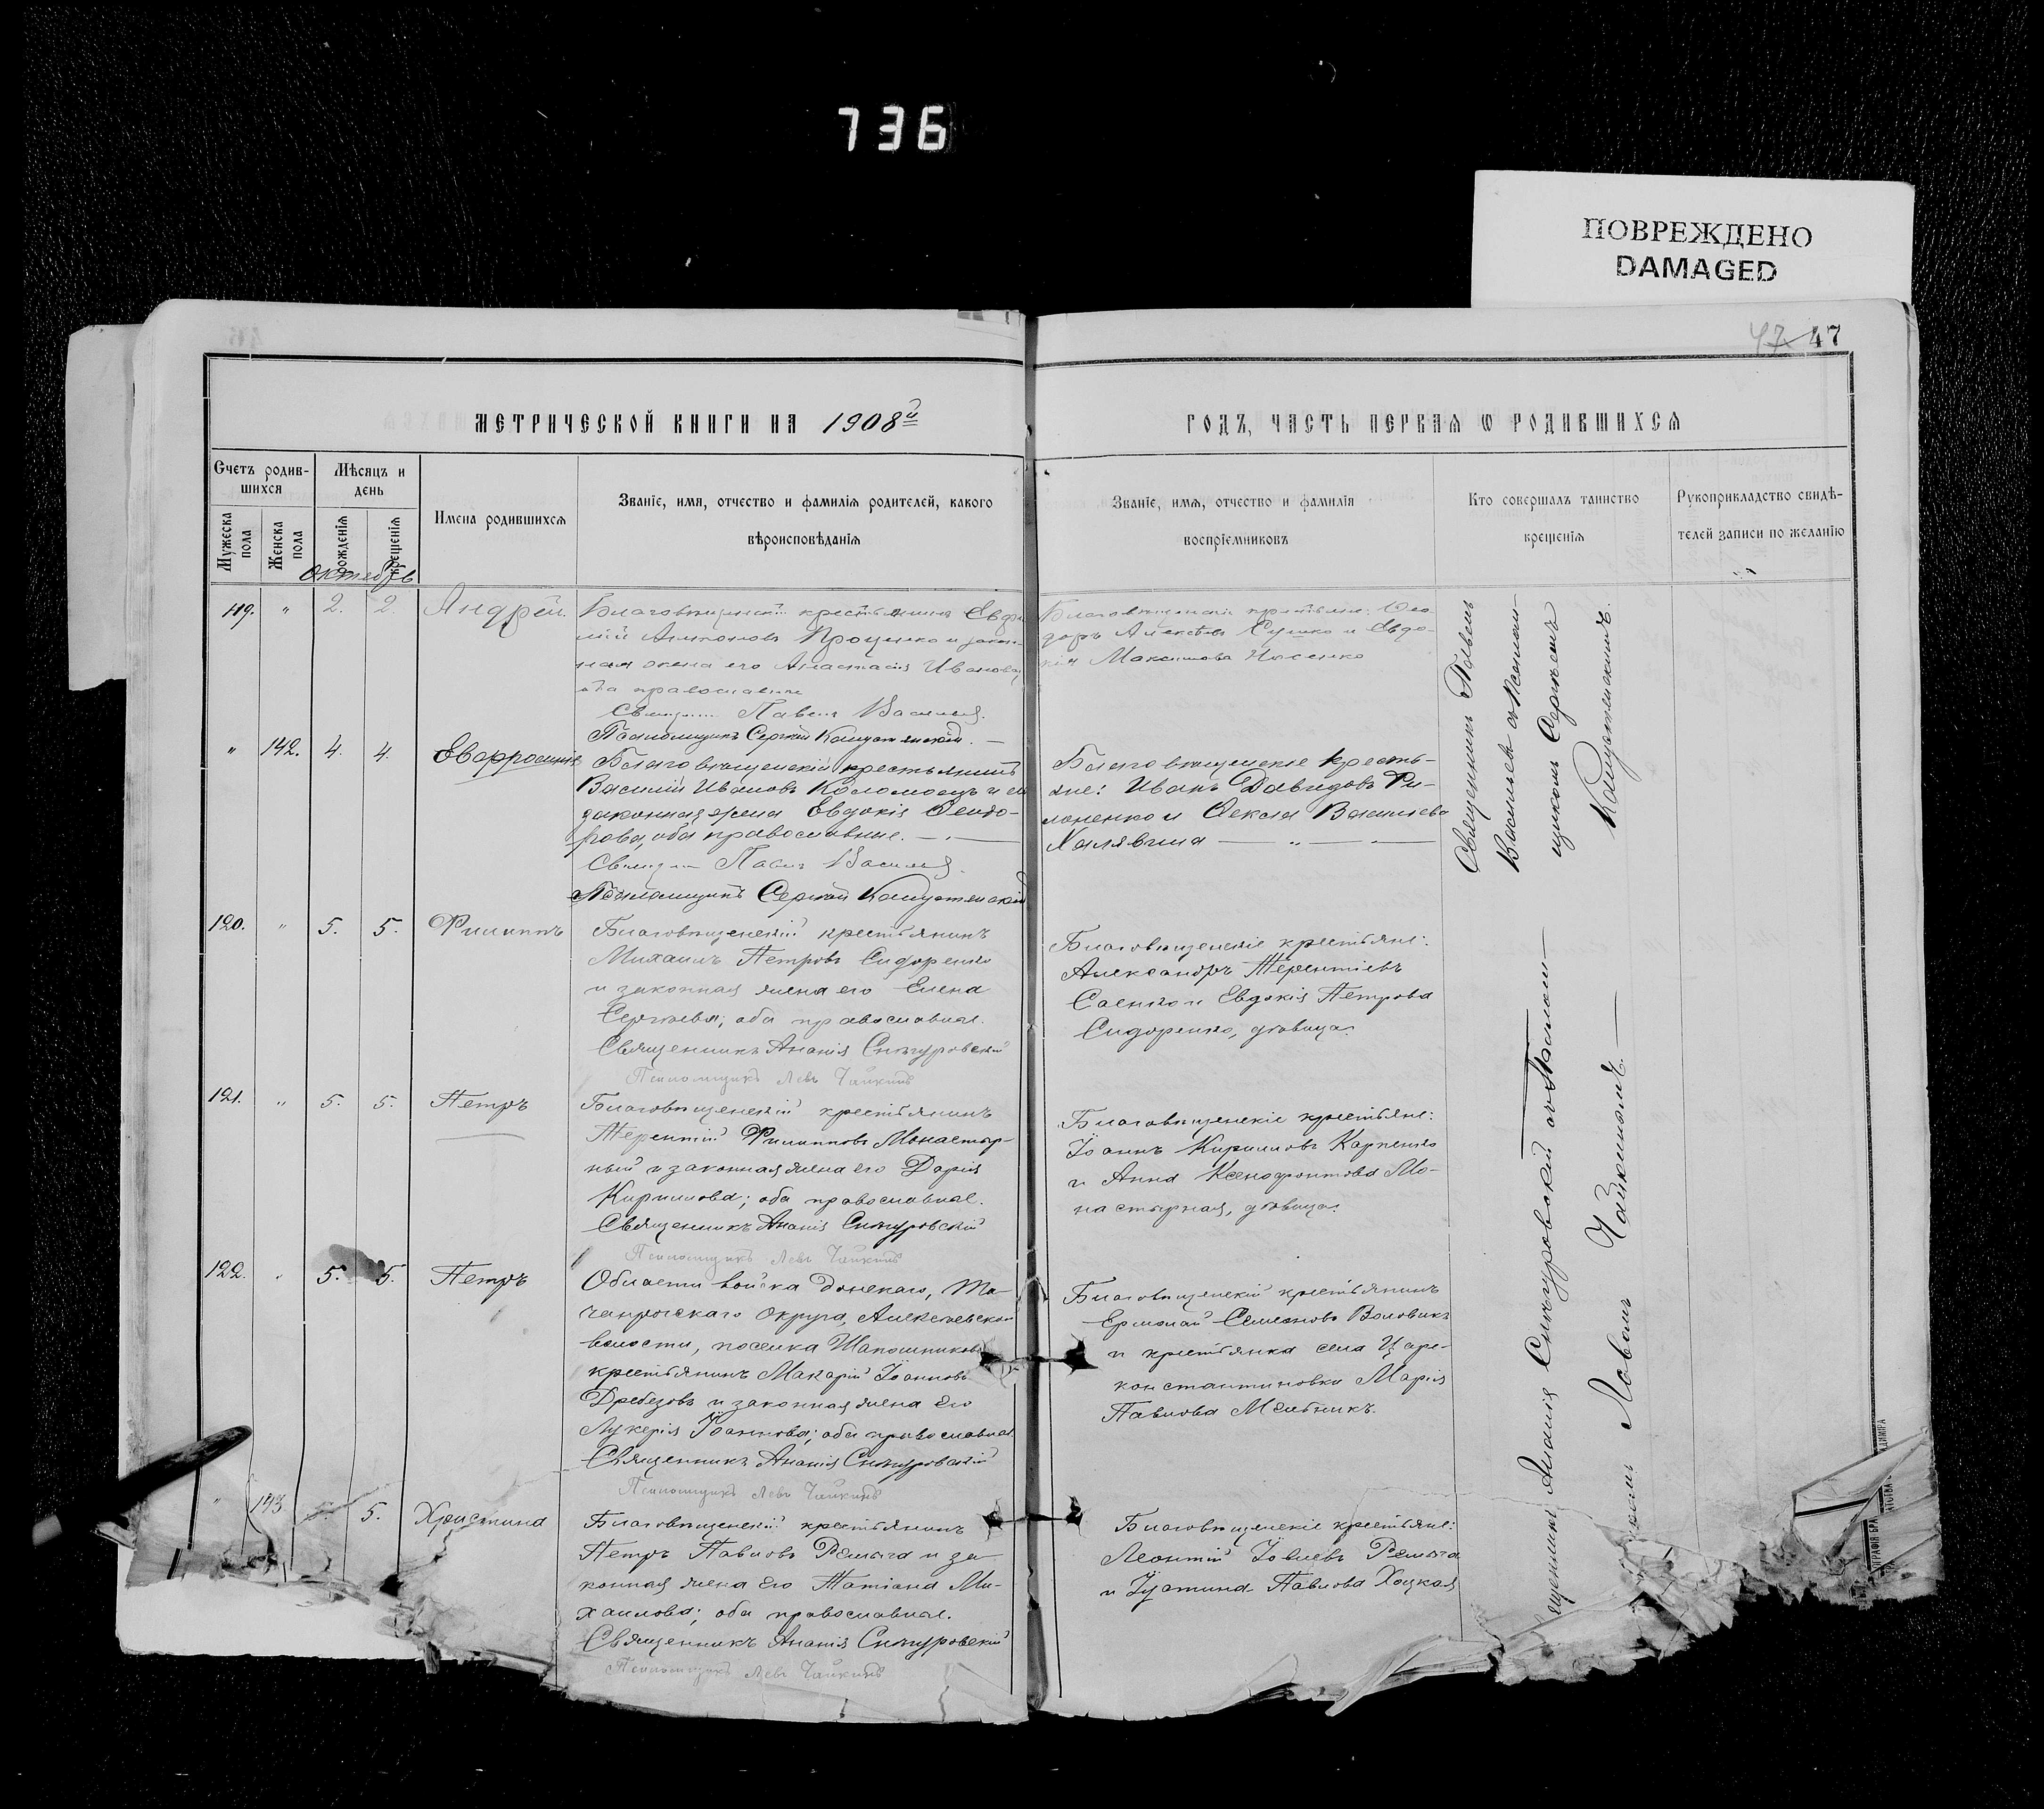 736
ПОВРЕЖДЕНО
DAMAGED
47 47
МЕТРИЧЕСКОЙ КНИГИ НА 1908й
ГОДЪ, ЧАСТЬ ПЕРВАЯ Ѡ РОДИВШИХСЯ
Счетъ родив-
шихся
Мѣсяцъ и
день
Мужеска
пола
Женска
пола
рожденія
крещенія
Имена родившихся
Званіе, имя, отчество и фамилія родителей, какого
вѣроисповѣданія
Званіе, имя, отчество и фамилія
воспріемниковъ
Кто совершалъ таинство
крещенія
Рукоприкладство свидѣ-
телей записи по желанію
Октябрь
119. " 2. 2. Андрей.
Благовѣщенскій крестьянинъ Евфи
мій Антоновъ Проценко и закон-
ная жена его Анастасія Иванова,
оба православные
Священникъ Павелъ Васильевъ.
Псаломщикъ Сергій Капустянскій.
Благовѣщенскіе крестьяне: Ѳео
доръ Алексѣевъ Сушко и Евдо-
кія Максимова Носенко
" 142. 4. 4. Евфросинія
Благовѣщенскій крестьянинъ
Василій Ивановъ Коломоецъ и его
законная жена Евдокія Ѳеодо-
рова, оба православные.
Священникъ Павелъ Васильевъ.
Псаломщикъ Сергій Капустянскій
Благовѣщенскіе кресть-
яне: Иванъ Давидовъ Фи-
лоненко и Ѳекла Васильева
Халявина
Священникъ Павелъ
Васильевъ съ Псалом-
щикомъ Сергѣемъ
Капустянскимъ.
120. " 5. 5. Филиппъ
Благовѣщенскій крестьянинъ
Михаилъ Петровъ Сидоренко
и законная жена его Елена
Сергѣева; оба православные.
Священникъ Ананія Снѣгуровскій
Псаломщикъ Левъ Чайкинъ
Благовѣщенскіе крестьяне:
Александръ Терентіевъ
Саенко и Евдокія Петрова
Сидоренко, дѣвица.
121. " 5. 5. Петръ
Благовѣщенскій крестьянинъ
Терентій Филипповъ Монастыр-
ный и законная жена его Дарія
Кириллова; оба православные.
Священникъ Ананія Снѣгуровскій
Псаломщикъ Левъ Чайкинъ
Благовѣщенскіе крестьяне:
Іоаннъ Кирилловъ Карпенко
и Анна Ксенофонтова Мо-
настырная, дѣвица.
122. " 5. 5. Петръ
Области войска Донскаго, Та-
ганрогскаго округа, Алексѣевской
волости, поселка Шапошникова
крестьянинъ Макарій Іоанновъ
Дребезовъ и законная жена его
Лукерія Іоаннова; оба православные
Священникъ Ананія Снѣгуровскій
Псаломщикъ Левъ Чайкинъ
Благовѣщенскій крестьянинъ
Ермолай Семеоновъ Воловикъ
и крестьянка села Царе-
константиновки Марія
Павлова Мельникъ.
" 143 5. Христина
Благовѣщенскій крестьянинъ
Петръ Павловъ Ремыга и за
конная жена его Татіана Ми-
хаилова; оба православные.
Священникъ Ананія Снѣгуровскій
Псаломщикъ Левъ Чайкинъ
Благовѣщенскіе крестьяне:
Леонтій Іовлевъ Ремыга
и Іустина Павлова Хоцкая
щенникъ Ананія Снѣгуровскій съ Псалом-
Львомъ Чайкинымъ.